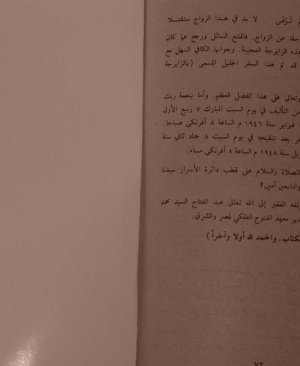 لا بد في هذا الزواج ستفتسلا
عن الزواج . فاقتنع السائل ورجع عما كان
الزايرجة العجيبة . وجوابها الكافي السهل مع
قد تم هذا السفر الجليل المسمى ( بالزايرجة
وتعالى على هذا الفضل العظيم . وأما بنعمة ربك
من التأليف في يوم السبت المبارك ٧ ربيع الأول
فبراير سنة ١٩٤٦ م الساعة ٨ أفرنكى صباحا .
بعد تنقيحه في يوم السبت ٨ جماد ثاني سنة
سنة ١٩٤٨ م الساعة ٨ أفرنكى مساء .
الصلاة والسلام على قطب دائرة الأسرار سيدنا
والتابعين آمين؟
الفقير إلى الله تعالى عبد الفتاح السيد محمد
معهد الفتوح الفلكي لمصر والشرق .
والحمد لله أولا وآخراً )
٧٢